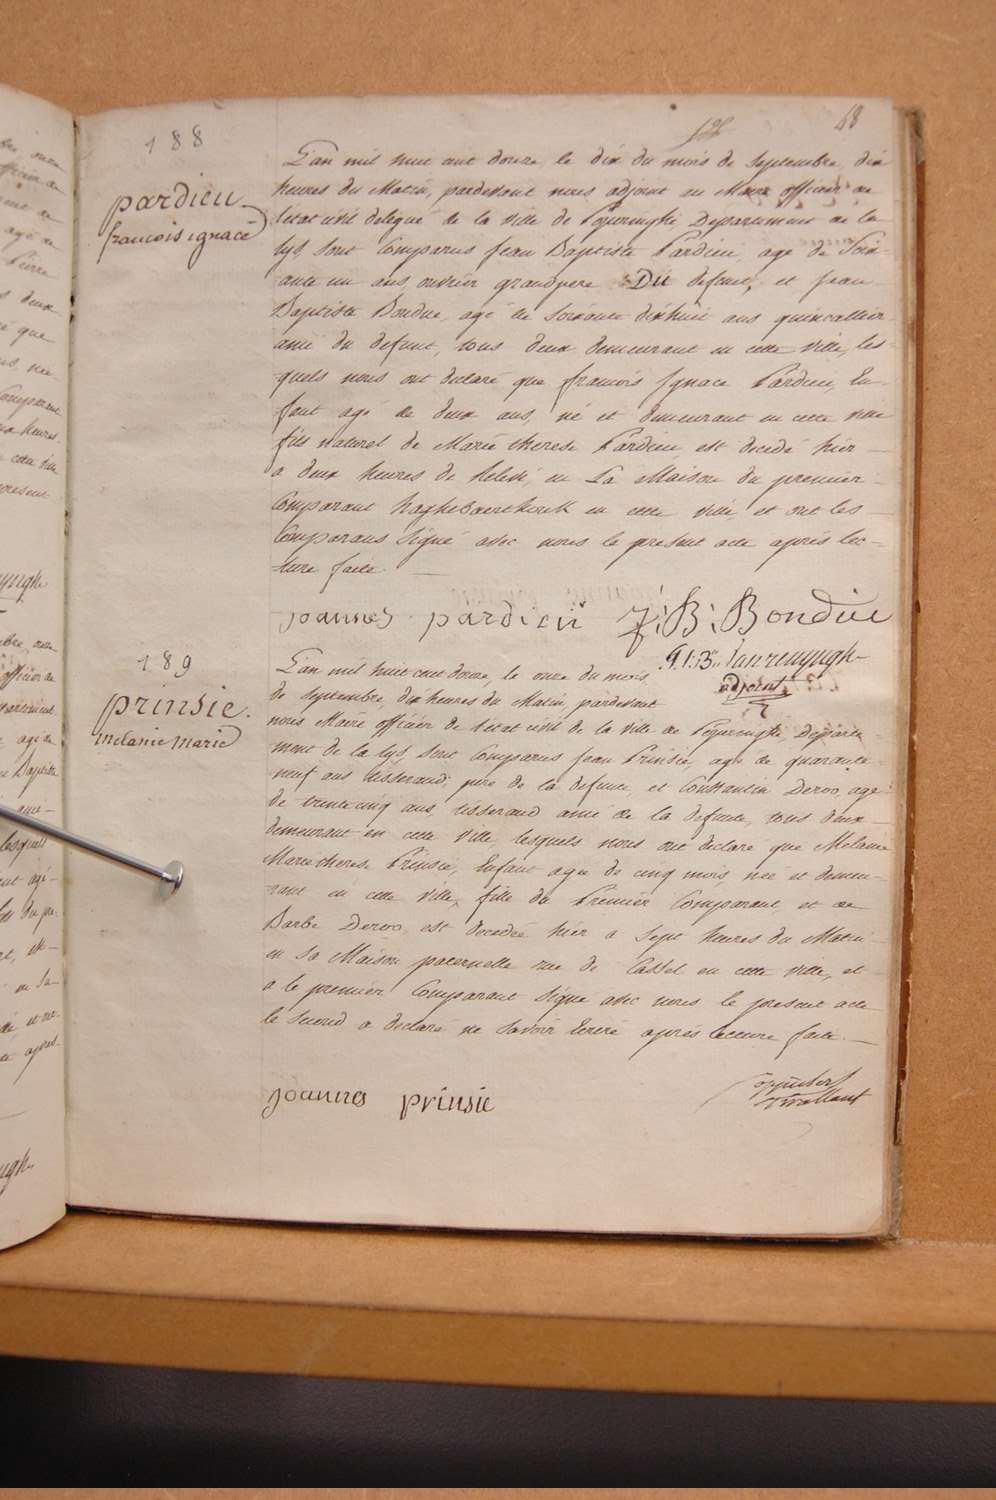 68
188
pardieu
francois ignace
L'an mil huit cent douze le dix du mois de Septembre dix
heures du Matin, pardevant nous adjoint au Maire officier de
l'état civil delegué de la ville de Poperinghe Departement de la
lys, sont Comparus Jean Baptiste Pardieu, agé de Soix-
ante un ans, ouvrier grandpere Du defunt, et Jean
Baptiste Bondue, agé de soixante dixhuit ans quincallier
amié du defunt, tous deux demeurant en cette ville, les-
quels nous ont declaré que francois Ignace Pardieu, En-
fant agé de deux ans, né et demeurant en cette ville
fils naturel de Marie therese Pardieu est decedé hier
a deux heures de Relevé, en La Maison du premier
Comparant haghebaerthouk en cette ville, et ont les
Comparans Signé avec nous le present acte après lec-
ture faite.
joannes pardieu J: B: Bondue
P. J. B. Vanrenynghe
adjoint
189
prinsie
melanie marie
L'an mil huit cent douze, le onze du mois
de Septembre, dix heures du Matin, pardevant
nous Maire officier de l'état civil de la ville de Poperinghe, départe-
ment de la lys, sont Comparus Jean Prinsie, agé de quarante
neuf ans tisserand, pere de la defunte, et Constantin Deroo, agé
de trentecinq ans, tisserand amié de la defunte, tous deux
demeurant en cette ville, lesquels nous ont declaré que Melanie
Marie therese Prinsie, Enfant agée de cinq mois, née et demeu-
rant en cette ville, fille du Premier Comparant, et de
Barbe Deroo, est decedée hier a sept heures du Matin
en sa Maison paternelle rue de Cassel en cette ville, et
a le premier Comparant Signé avec nous le present acte
le Second a declaré ne Savoir Ecrire après lecture faite.
joannes prinsie